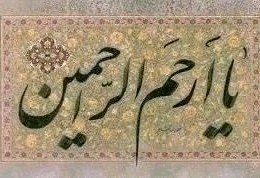 یا اَرحَم الرّاحمین